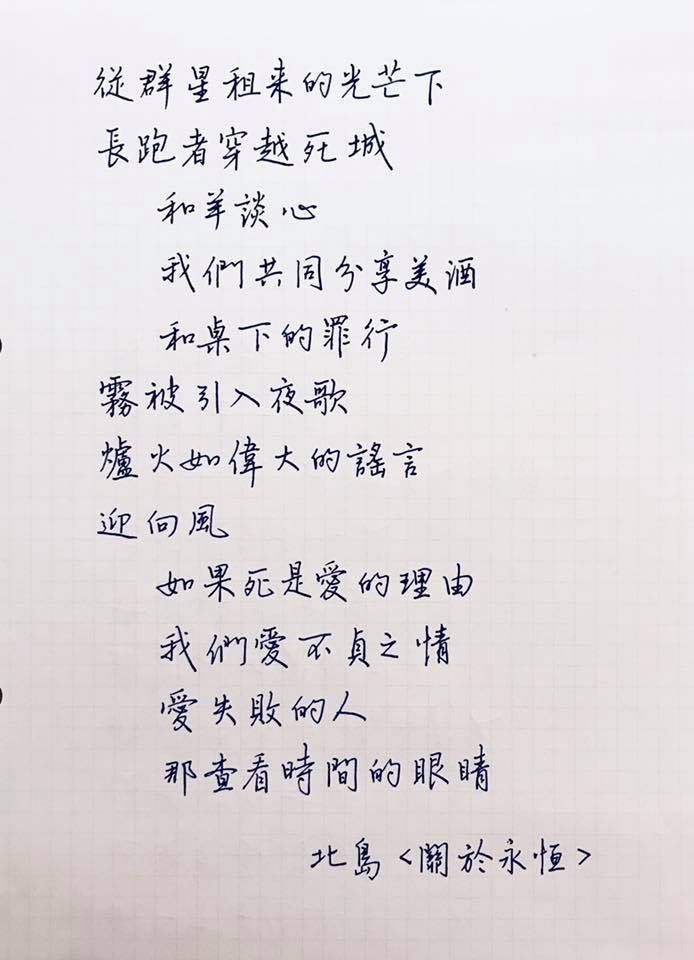 從群星租来的光芒下
長跑者穿越死城
和羊談心
我們共同分享美酒
和桌下的罪行
霧被引入夜歌
爐火如偉大的謠言
迎向風
如果死是愛的理由
我們愛不貞之情
愛失敗的人
那查看時間的眼睛
北島<關於永恒>